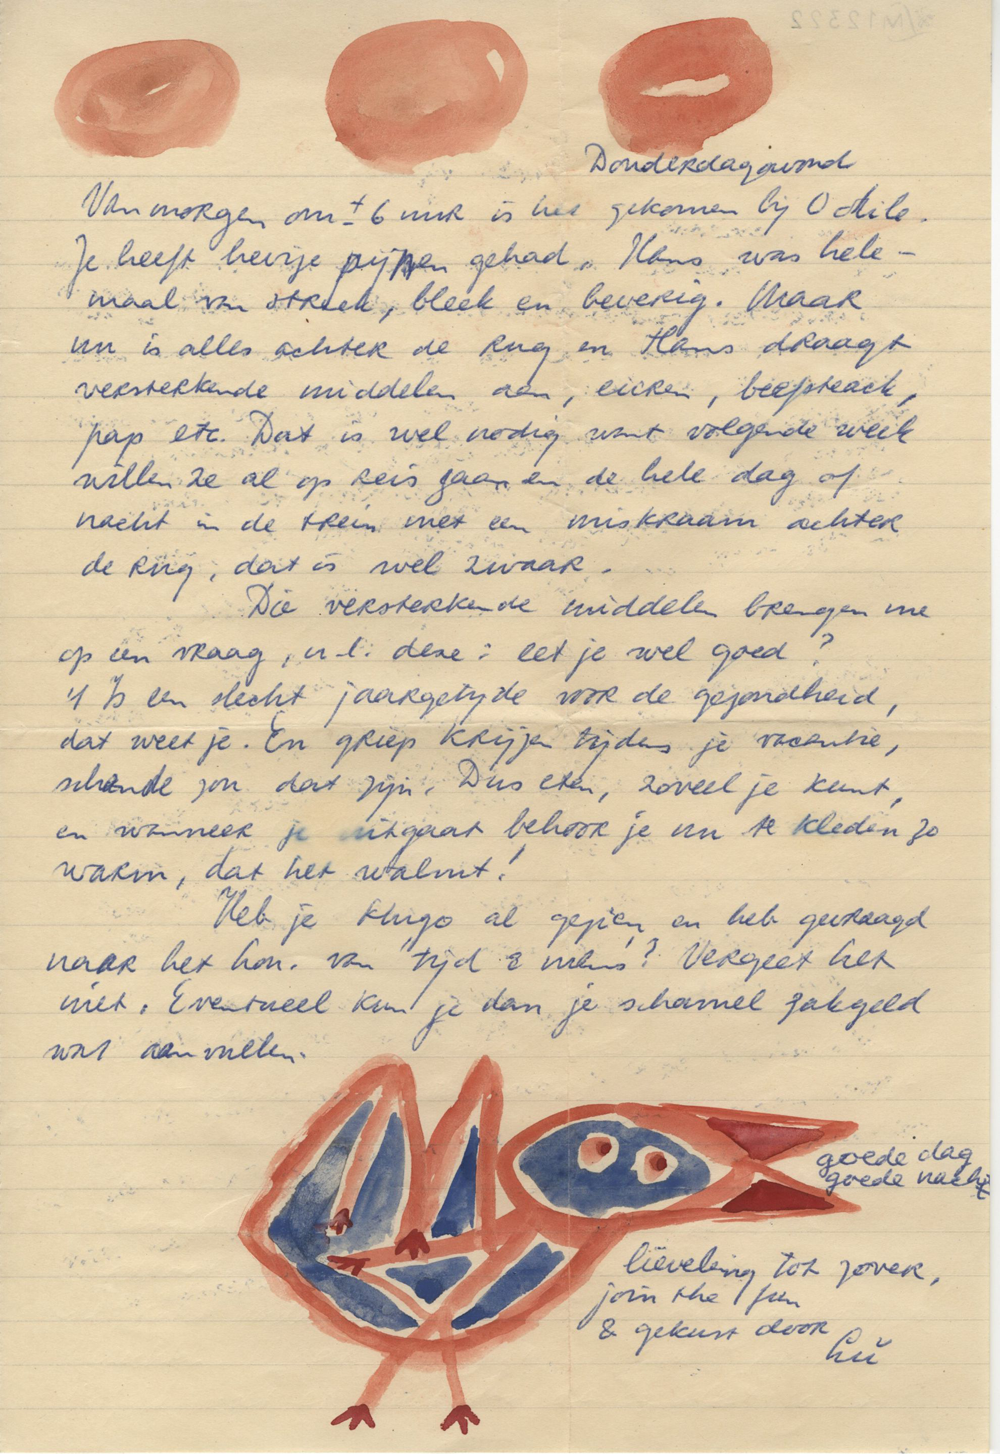 Donderdagavond
Van morgen om ± 6 uur is het gekomen bij Odile.
Ze heeft hevige pijnen gehad. Hans was hele-
maal van streek, bleek en beverig. Maar
nu is alles achter de rug en Hans draagt
versterkende middelen aan, eieren, beefsteack,
pap etc. Dat is wel nodig want volgende week
willen ze al op reis gaan en de hele dag of
nacht in de trein met een miskraam achter
de rug, dat is wel zwaar.
Die versterkende middelen brengen me
op een vraag, n.l. deze: eet je wel goed?
't Is een slecht jaargetijde voor de gezondheid,
dat weet je. En griep krijgen tijdens je vacantie,
schande zou dat zijn. Dus eten, zoveel je kunt,
en wanneer je uitgaat behoor je nu te kleden zo
warm, dat het walmt!
Heb je Hugo al gezien en heb gevraagd
naar het hon. van "tijd & mens"? Vergeet het
niet. Eventueel kun je dan je schamel zakgeld
wat aanvullen.
goede dag
goede nacht
lieveling tot zover,
join the fun
& gekust door
Lu
M12322